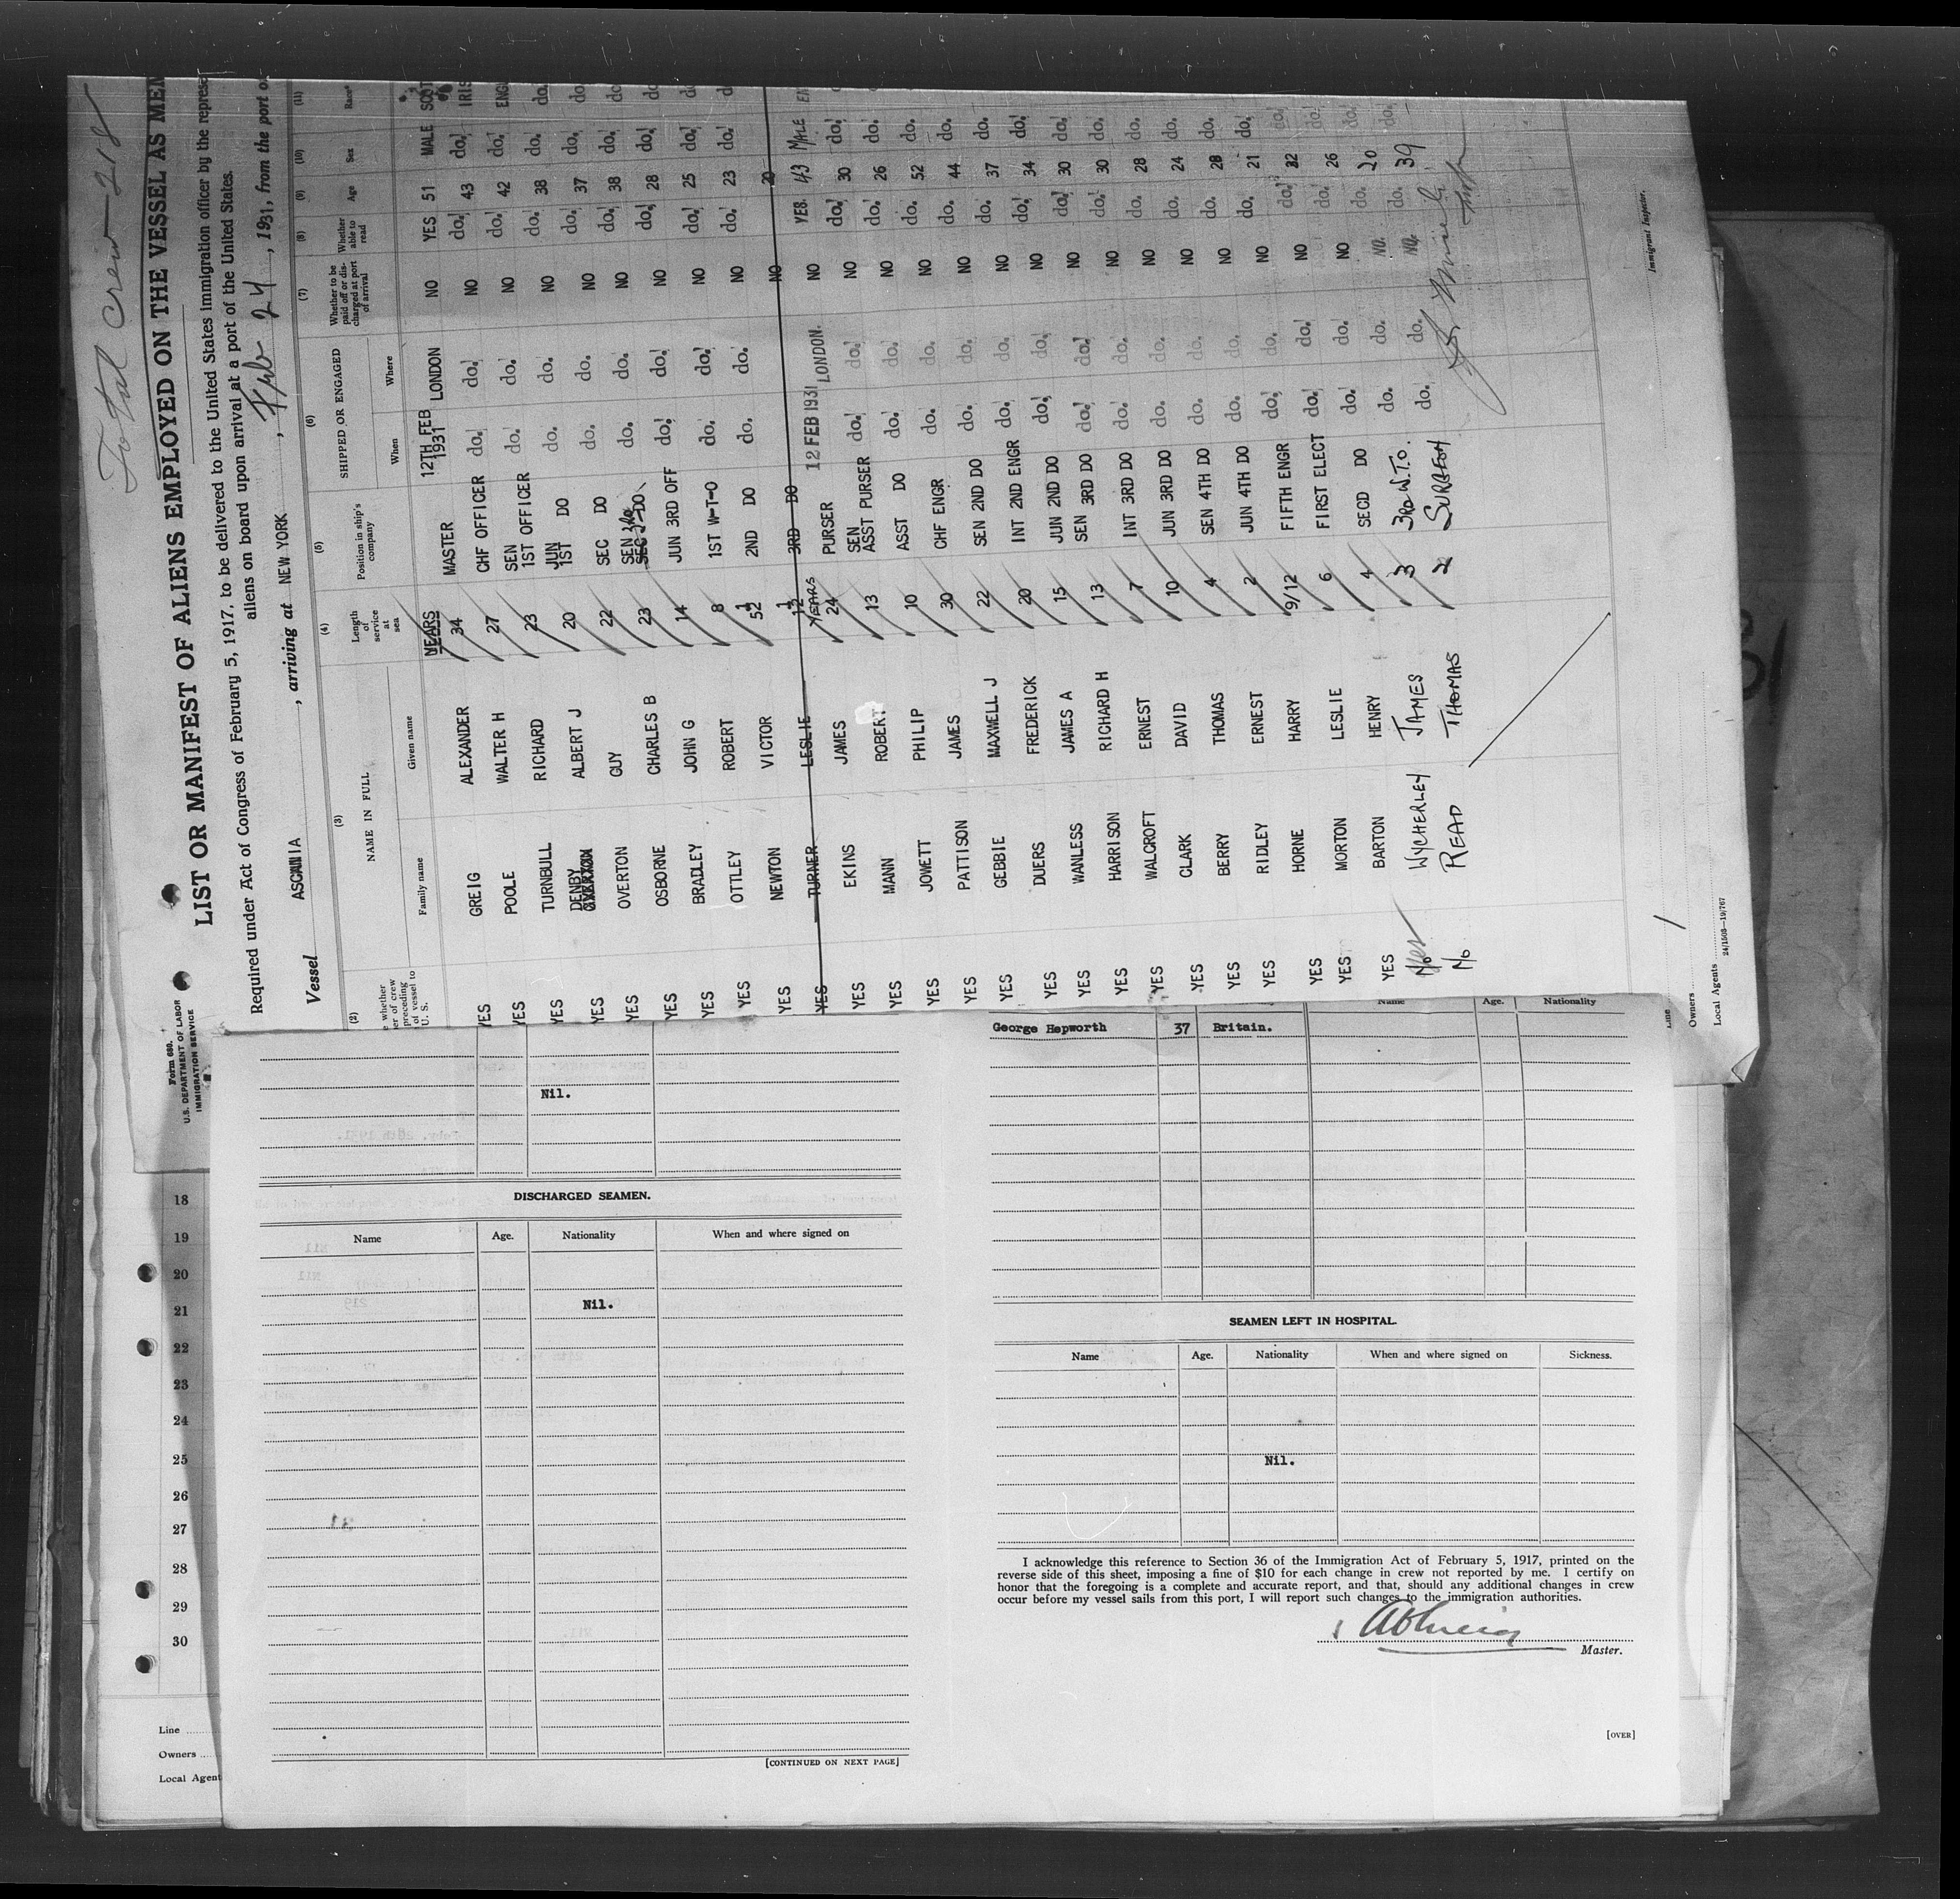 Total Crew – 218
Form 680.
U.S. DEPARTMENT OF LABOR
IMMIGRATION SERVICE
LIST OR MANIFEST OF ALIENS EMPLOYED ON THE VESSEL AS MEM
Required under Act of Congress of February 5, 1917, to be delivered to the United States immigration officer by the represe
aliens on board upon arrival at a port of the United States.
Vessel ASCANIA, arriving at NEW YORK, Feb 24, 1931, from the port o
(2) (3) (4) (5) (6) (7) (8) (9) (10) (11)
whether er of crew preceding of vessel to U. S. NAME IN FULL Length of service at sea Position in ship's company SHIPPED OR ENGAGED Whether to be paid off or discharged at port of arrival Whether able to read Age Sex Race*
Family name Given name When Where
YES GREIG ALEXANDER YEARS 34 MASTER 12TH FEB 1931 LONDON NO YES 51 MALE SCOT
YES POOLE WALTER H 27 CHF OFFICER do. do. NO do. 43 do. IRIS
YES TURNBULL RICHARD 23 SEN 1ST OFFICER do. do. NO do. 42 do. ENG
YES DENBY ALBERT J 20 JUN 1ST DO do. do. NO do. 38 do. do.
YES OVERTON GUY 22 SEC DO do. do. NO do. 37 do. do.
YES OSBORNE CHARLES B 23 SEN 3rd DO do. do. NO do. 38 do. do.
YES BRADLEY JOHN G 14 JUN 3RD OFF do. do. NO do. 28 do. do.
YES OTTLEY ROBERT 8 1ST W-T-O do. do. NO do. 25 do. do.
YES NEWTON VICTOR 1/52 2ND DO do. do. NO do. 23 do. do.
YES TURNER LESLIE 1/12 3RD DO NO 20
YES EKINS JAMES YEARS 24 PURSER 12 FEB 1931 LONDON. NO YES. 43 MALE EN
YES MANN ROBERT 13 SEN ASST PURSER do. do. NO do. 30 do.
YES JOWETT PHILIP 10 ASST DO do. do. NO do. 26 do.
YES PATTISON JAMES 30 CHF ENGR do. do. NO do. 52 do.
YES GEBBIE MAXWELL J 22 SEN 2ND DO do. do. NO do. 44 do.
YES DUERS FREDERICK 20 INT 2ND ENGR do. do. NO do. 37 do.
YES WANLESS JAMES A 15 JUN 2ND DO do. do. NO do. 34 do.
YES HARRISON RICHARD H 13 SEN 3RD DO do. do. NO do. 30 do.
YES WALCROFT ERNEST 7 INT 3RD DO do. do. NO do. 30 do.
YES CLARK DAVID 10 JUN 3RD DO do. do. NO do. 28 do.
YES BERRY THOMAS 4 SEN 4TH DO do. do. NO do. 24 do.
YES RIDLEY ERNEST 2 JUN 4TH DO do. do. NO do. 28 do.
YES HORNE HARRY 9/12 FIFTH ENGR do. do. NO do. 21 do.
YES MORTON LESLIE 6 FIRST ELECT do. do. NO do. 22 do.
YES BARTON HENRY 4 SECD DO do. do. NO do. 26 do.
Yes WYCHERLEY JAMES 3 3RD W.T.O. do. do. NO. do. 20 do.
No READ THOMAS 2 SURGEON do. do. NO. do. 39 do.
Immigrant Inspector.
Line
Owners
Local Agents
24/1508—19/767
Nil.
DISCHARGED SEAMEN.
Name Age. Nationality When and where signed on
Nil.
[CONTINUED ON NEXT PAGE]
Name Age. Nationality
George Hepworth 37 Britain.
SEAMEN LEFT IN HOSPITAL.
Name Age. Nationality When and where signed on Sickness.
Nil.
I acknowledge this reference to Section 36 of the Immigration Act of February 5, 1917, printed on the
reverse side of this sheet, imposing a fine of $10 for each change in crew not reported by me. I certify on
honor that the foregoing is a complete and accurate report, and that, should any additional changes in crew
occur before my vessel sails from this port, I will report such changes to the immigration authorities.
Master.
[OVER]
18
19
20
21
22
23
24
25
26
27
28
29
30
Line
Owners
Local Agent